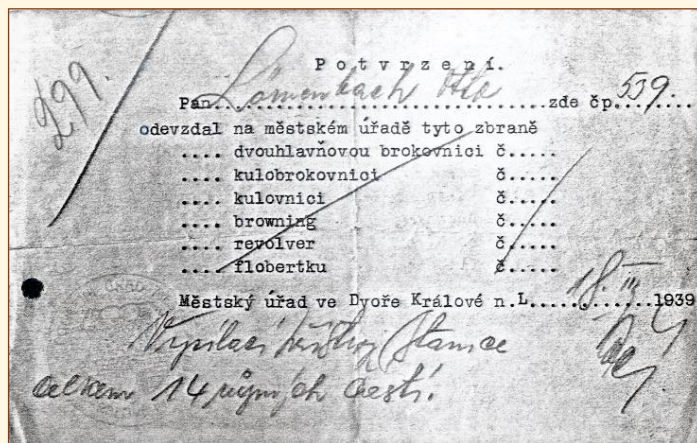 299.
Potvrzení.
Pan Löwenbach Otto zde čp. 539.
odevzdal na městském úřadě tyto zbraně
.... dvouhlavňovou brokovnici č.....
.... kulobrokovnici č.....
.... kulovnici č.....
.... browning č.....
.... revolver č.....
.... flobertku č.....
Městský úřad ve Dvoře Králové n.L. 18. III. 1939
Vysílací stanice
celkem 14 různých částí.